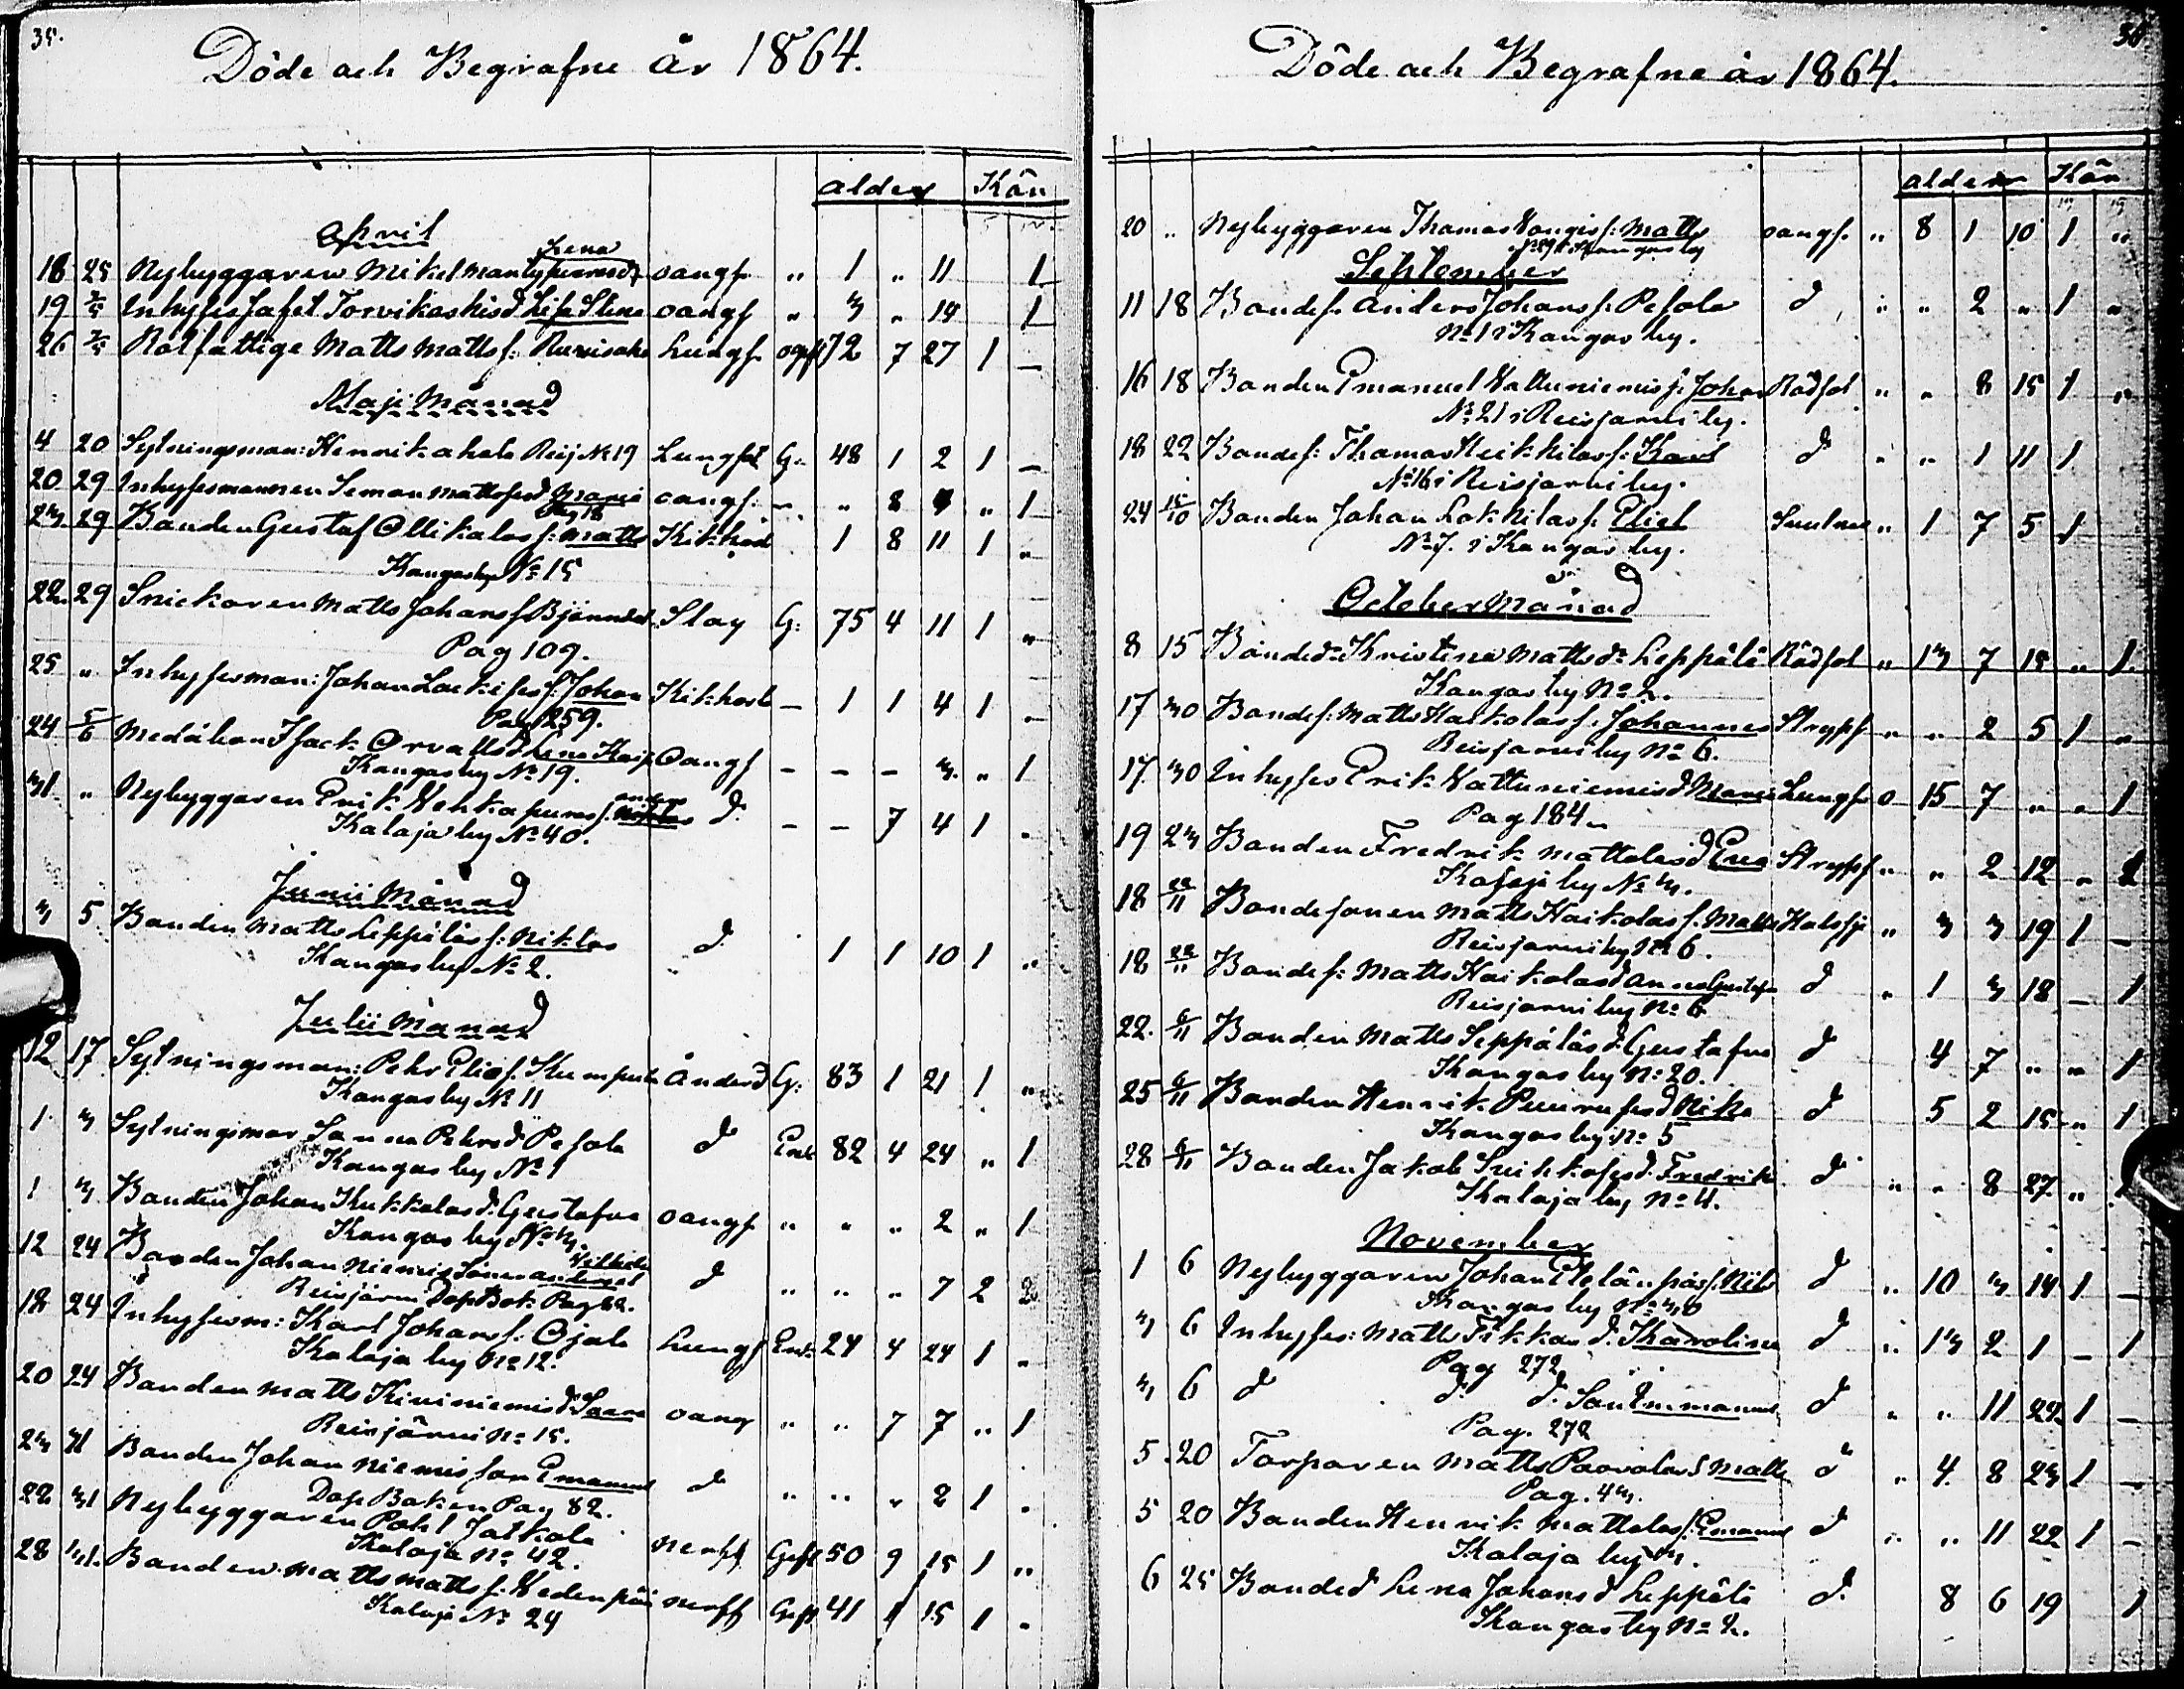 35.
Döde och Begrafne år 1864.
alder Kön
April
18 25 Nybyggaren Mikel Mantyperas d. Lena oangf. " 1 " 11 1
19 2/5 Inhyses Jafet Torvikoskis d. Lisa Stina oangf " 3 " 14 1
26 2/5 Rotfattige Matts Mattsf: Lungf. ogift 72 7 27 1 —
Maji Månad
4 20 Sytningsman: Henrik Ahola Reisj No 19 Lungsot G. 48 1 2 1 —
20 29 Inhysesmannen Simon Mattos d. Maria oangf: — " 8 " 1
Pag 18
23 29 Bonden Gustaf Ollikalas s: Matts Kikhost 1 8 11 1 "
Kangasby No 15
22. 29 Snickaren Matts Johans s. Slag G: 75 4 11 1 "
Pag 109.
25 " Inhysesman: Johan s. Johan Kikhost — 1 1 4 1 —
Pag 259.
24 5/6 Isack Orvalls d. Lena Kaisa Oangf — — — 3. " 1
Kangasby No 19.
31 " Nybyggaren Erik Vehkapuros s. Anders d. — — 7 4 1 .
Kalaja by No 40.
Junii Månad
3 5 Bonden Matts Leppäläs s: Niklas d. 1 1 10 1 "
Kangasby No 2.
Julii Månad
12 17 Sytningsman: Pehr Elias s. Kumpula Ålderd G: 83 1 21 1 "
Kangasby No 11
1 3 Sytningsmor Sanna Pehrs d. Pesola d Enk 82 4 24 " 1
Kangasby No 1
1 3 Bonden Johan Kukkolas d. Gustafva oangf. " " " 2 " 1
Kangas by No 3.
12 24 Bonden Johan Niemis Söner d " " " 7 2 2
Reisjärvi Dop Bok Pag 82.
18 24 Inhysesm: Karl Johans s. Ojala Lungs Enk. 24 4 24 1 "
Kalaja by No 12.
20 24 Bonden Matts Kiviniemis d: Saara oang " " 7 7 " 1
Reisjärvi No 15.
23 31 Bonden Johan Niemis son Emanuel d " " " 2 1 .
Dop Boken Pag 82.
22 31 Nybyggaren Pohl Jatkola nervf Gift 50 9 15 1 "
Kalaja No 42.
28 31. Bonden Matts Matts s. Vedenpää nervf Gift 41 1 15 1 "
Kalaja No 24
36
Döde och Begrafne år 1864.
alder Kön
20 " Nybyggaren Thomas Kangis s: Matts oangf. " 8 1 10 1 "
September
11 18 Bondes. Anders Johans s. Pesola d " " 2 " 1 "
No 1 i Kangas by.
16 18 Bonden Emanuel Vattuniemis s. Johan Rödsot " " 8 15 1 "
No 21 i Reisjärvi by.
18 22 Bondes: Thomas Heikkilas s. Karl d " " 1 11 1
No 16 i Reisjärvi by.
24 15/10 Bonden Johan Lokkilas s. Eliel " 1 7 5 1
No 7. i Kangas by.
October Månad
8 15 Bonded: Kristina Matts dr Leppälä Rödsot " 13 7 15 " 1.
Kangas by No 2.
17 30 Bondes: Matts Haikolas s. Johannes Strypsj " " 2 5 1 "
Reisjärvi by No 6.
17 30 Inhyses Erik Vattuniemis d Maria Lungs o 15 7 " " 1
Pag 184
19 23 Bonden Fredrik Mattolas d Eva Strypsj " " 2 12 " 1
Kalaja by No 3.
18 22/11 Bondesonen Matts Haikolas s. Matts Halssj " 3 3 19 1 —
Reisjärvi by No 6.
18 22/11 Bondes: Matts Haikolas d Anna Gustafva d " 1 3 18 — 1
Reisjärvi by No 6
22. 6/11 Bonden Matts Seppäläs d. Gustafva d 4 7 " " 1
Kangas by No 20.
25 6/11 Bonden Henrik d d 5 2 15 " 1
Kangas by No 5
28 6/11 Bonden Jakob d. Fredrika d " " 8 27 "
Kalaja by No 4.
November
1 6 Nybyggaren Johan s. Nils d " 10 3 14 1 —
Kangas by No 30
3 6 Inhyses: Matts Tikkas d. Karolina d " 13 2 1 — 1
Pag 272
3 6 d d. d. Son Emmanuel d " " 11 22 1 —
Pag. 272
5 20 Torparen Matts Paavolas s Matts d " 4 8 23 1 —
Pag. 43.
5 20 Bonden Henrik Mattolas s. Emanuel d " " 11 22 1 —
Kalaja by 3.
6 25 Bonded Lena Johans d Leppälä d. 8 6 19 1
Kangas by No 2.